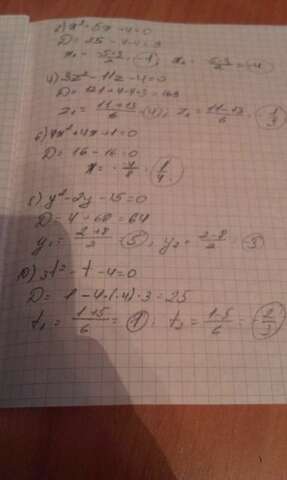 2) x² - 5x - 4 = 0
D = 25 - 4·4 = 9
x₁ = -5+3/2 = -1; x₂ = -5-3/2 = -4
4) 3z² - 11z - 4 = 0
D = 121 + 4·4·3 = 169
z₁ = 11+13/6 = 4; z₂ = 11-13/6 = -1/3
6) 4x² + 4x + 1 = 0
D = 16 - 16 = 0
y² - 2y - 15 = 0
D = 4 + 60 = 64
y₁ = 2+8/2 = 5; y₂ = 2-8/2 = -3
10) 3t² - t - 4 = 0
D = 1 - 4·(-4)·3 = 25
t₁ = 1+5/6 = 1; t₂ = 1-5/6 = -2/3